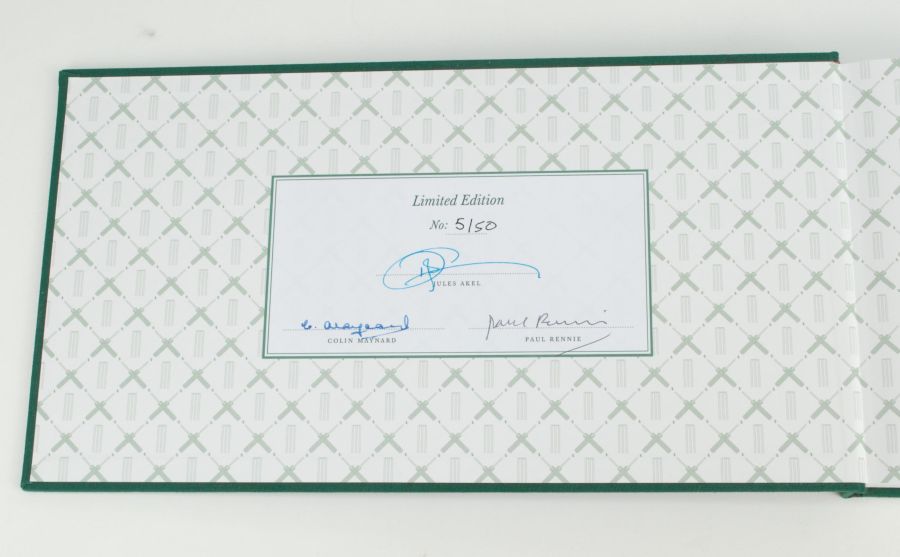 Limited Edition
No: 5/50
JULES AKEL
C. Maynard
Paul Rennie
COLIN MAYNARD
PAUL RENNIE